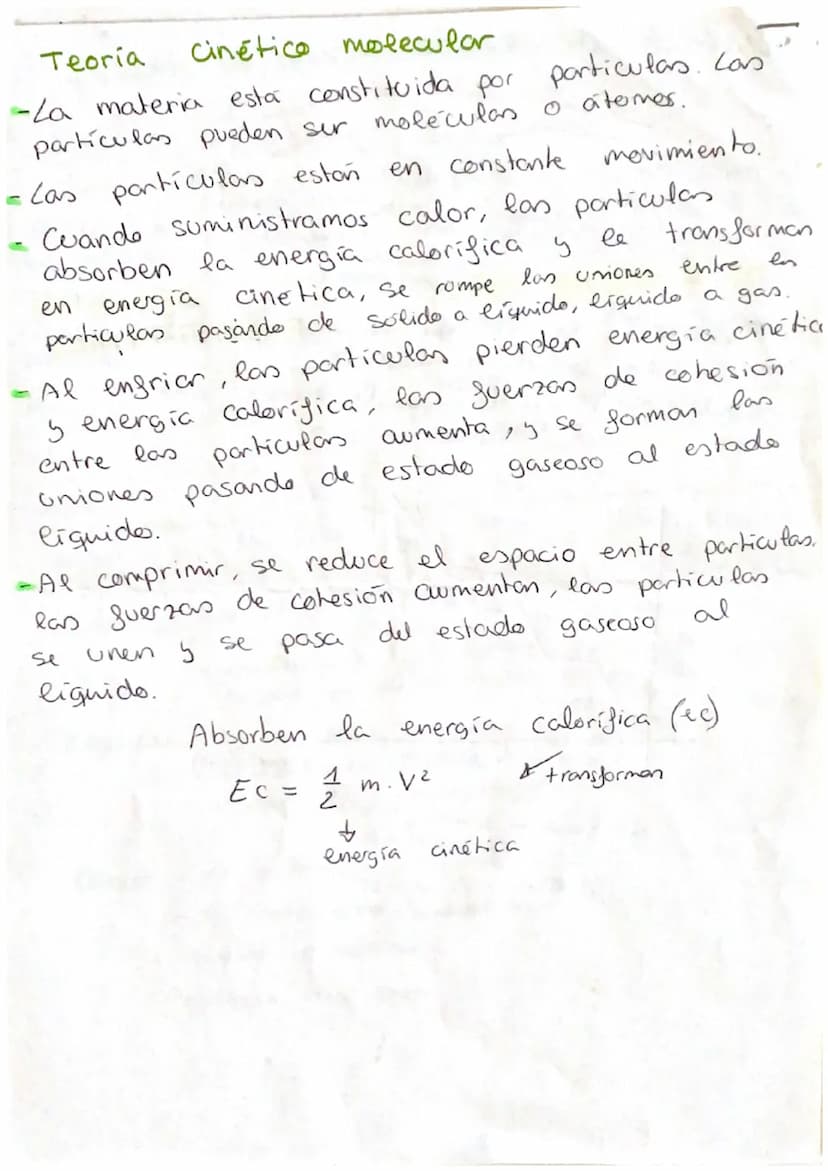 Teoría cinético molecular
-La materia está constituida por partículas. Las
partículas pueden ser moléculas o átomos.
- Las partículas están en constante movimiento.
- Cuando suministramos calor, las partículas
absorben la energía calorífica y la transforman
en energía cinética, se rompe las uniones entre en
partículas pasando de sólido a líquido, líquido a gas.
- Al enfriar, las partículas pierden energía cinética
y energía calorífica, las fuerzas de cohesión
entre las partículas aumenta, y se forman las
uniones pasando de estado gaseoso al estado
líquido.
-Al comprimir, se reduce el espacio entre partículas,
las fuerzas de cohesión aumentan, las partículas
se unen y se pasa del estado gaseoso al
líquido.
Absorben la energía calorífica (ec)
Ec = 1/2 m. V² ↙ transforman
↓
energía cinética